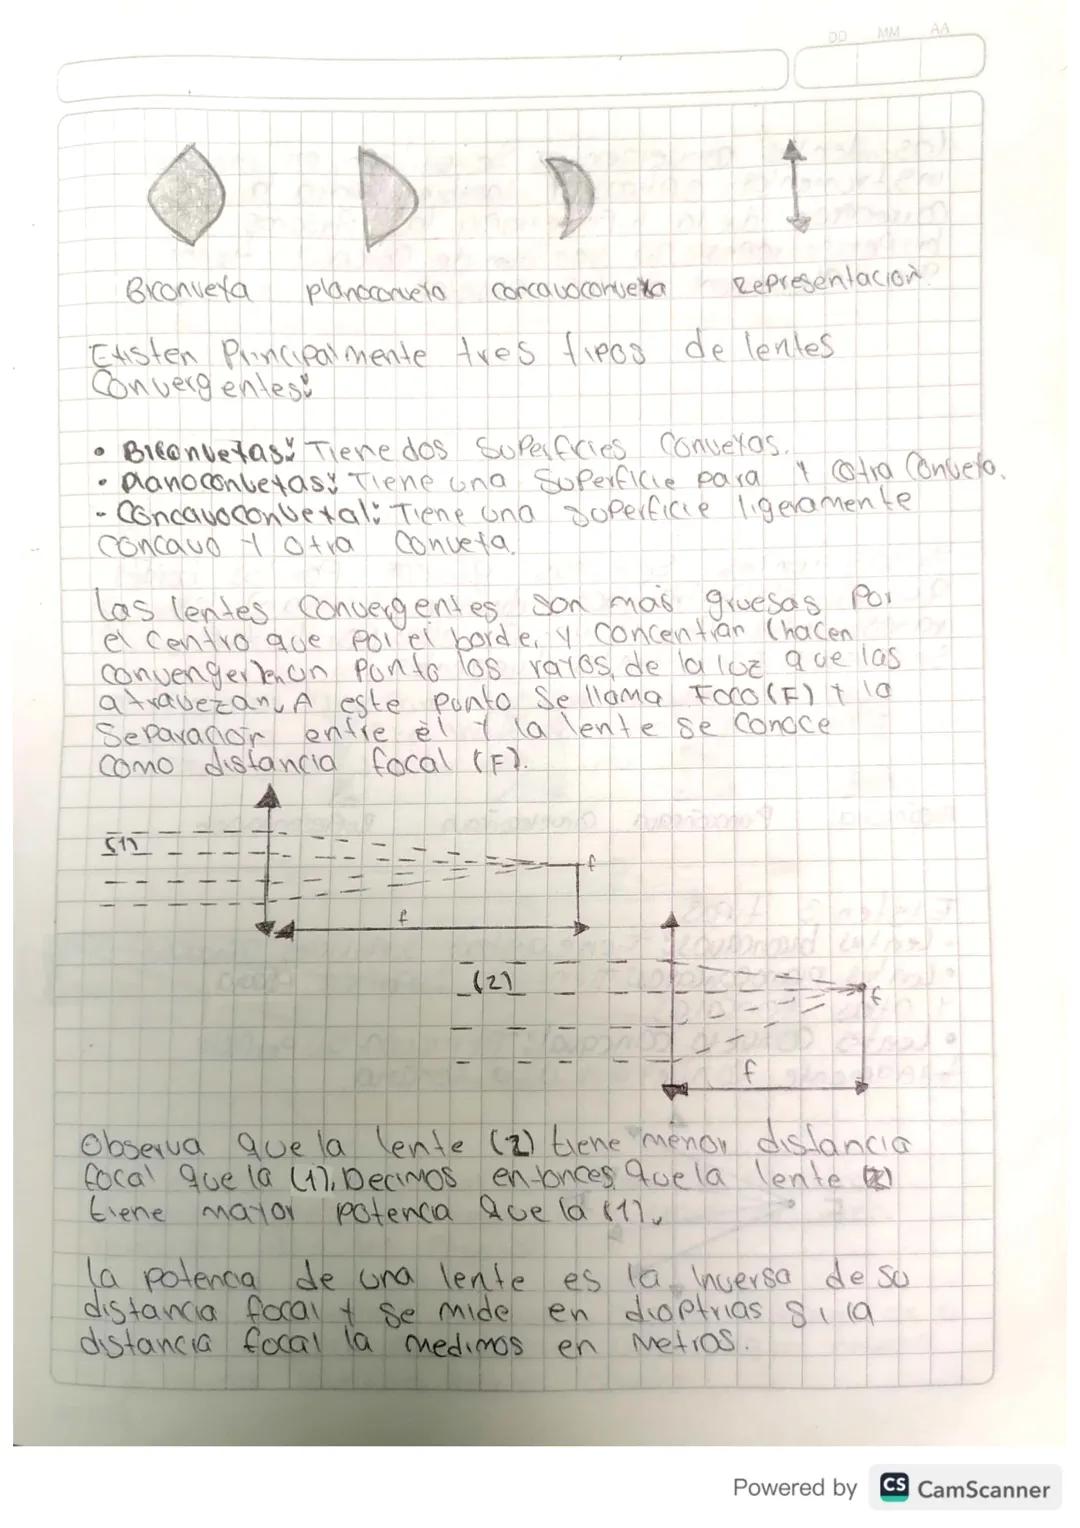 DD MM AA
Biconvexa planoconvexo concavoconvexa Representación
Existen Principalmente tres tipos de lentes
Convergentes:
• Biconvexas: Tiene dos Superficies Convexas.
• Planoconvexas: Tiene una Superficie para y cotra Convexo.
- Concavoconvexal: Tiene una superficie ligeramente
concavo y otra Convexa.
Las lentes Convergentes son más gruesas Por
el Centro que por el borde, y Concentran (hacen
convenger) en un Punto los rayos de la luz que las
atraviezan. A este punto Se llama Foco (F) y la
Separación entre él y la lente se Conoce
como distancia focal (F).
(1)
f
f
(2)
f
f
Observa que la lente (2) tiene menor distancia
focal que la (1). Decimos entonces que la lente (2)
tiene mayor potencia que la (1).
La potencia de una lente es la Inversa de su
distancia focal y se mide en dioptrias si la
distancia focal la medimos en Metros.
Powered by CS CamScanner